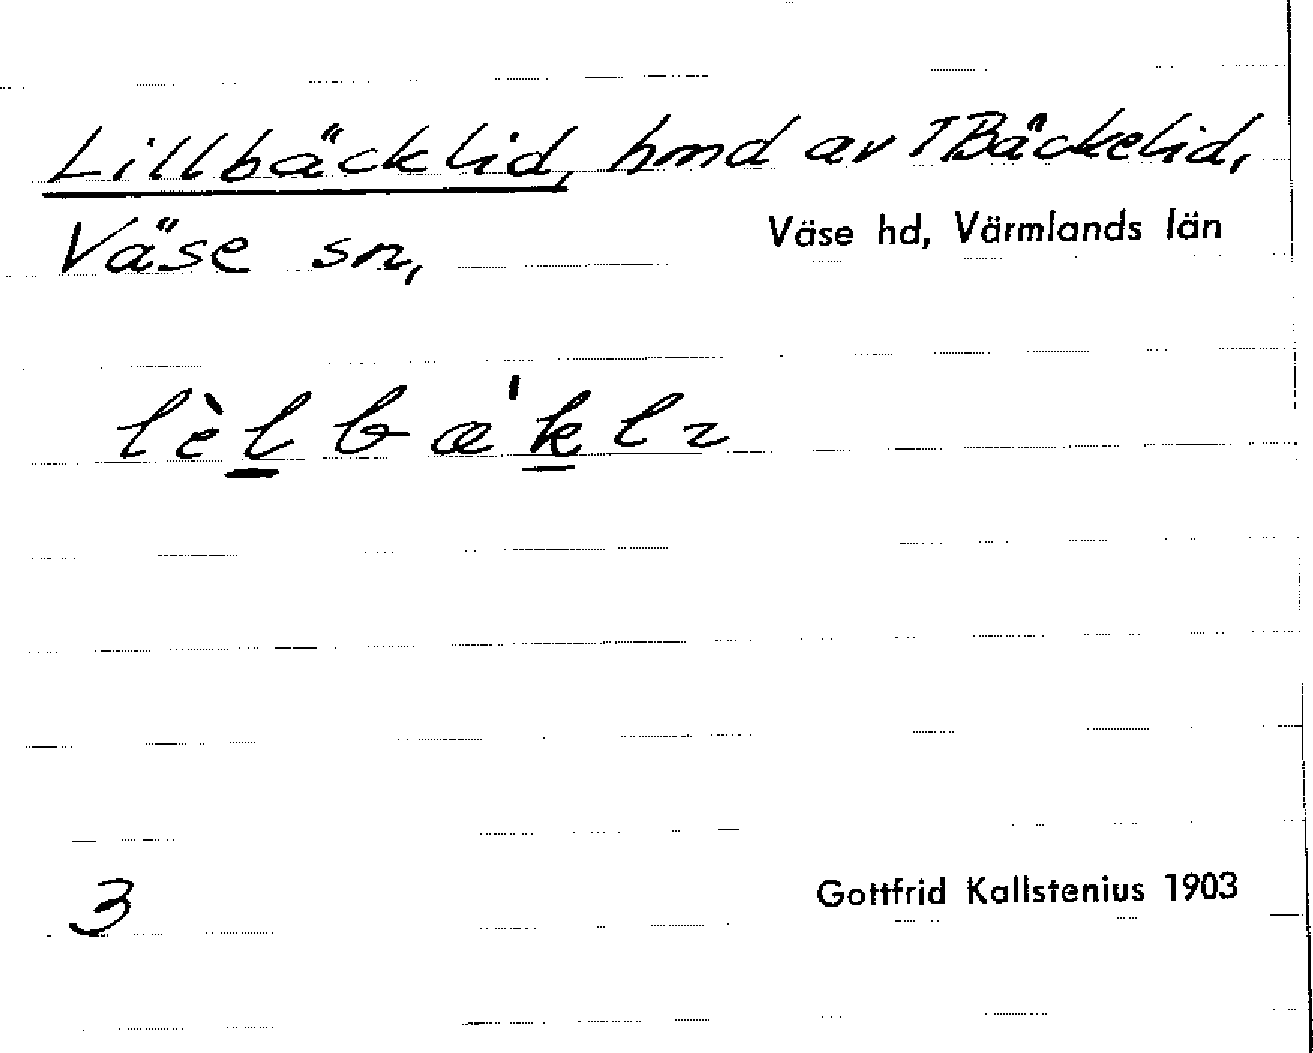 Lillbäcklid, hmd av TBäckelid,
Väse sn,
Väse hd, Värmlands län
lèl̲bæ'k̲lɩ
3
Gottfrid Kallstenius 1903